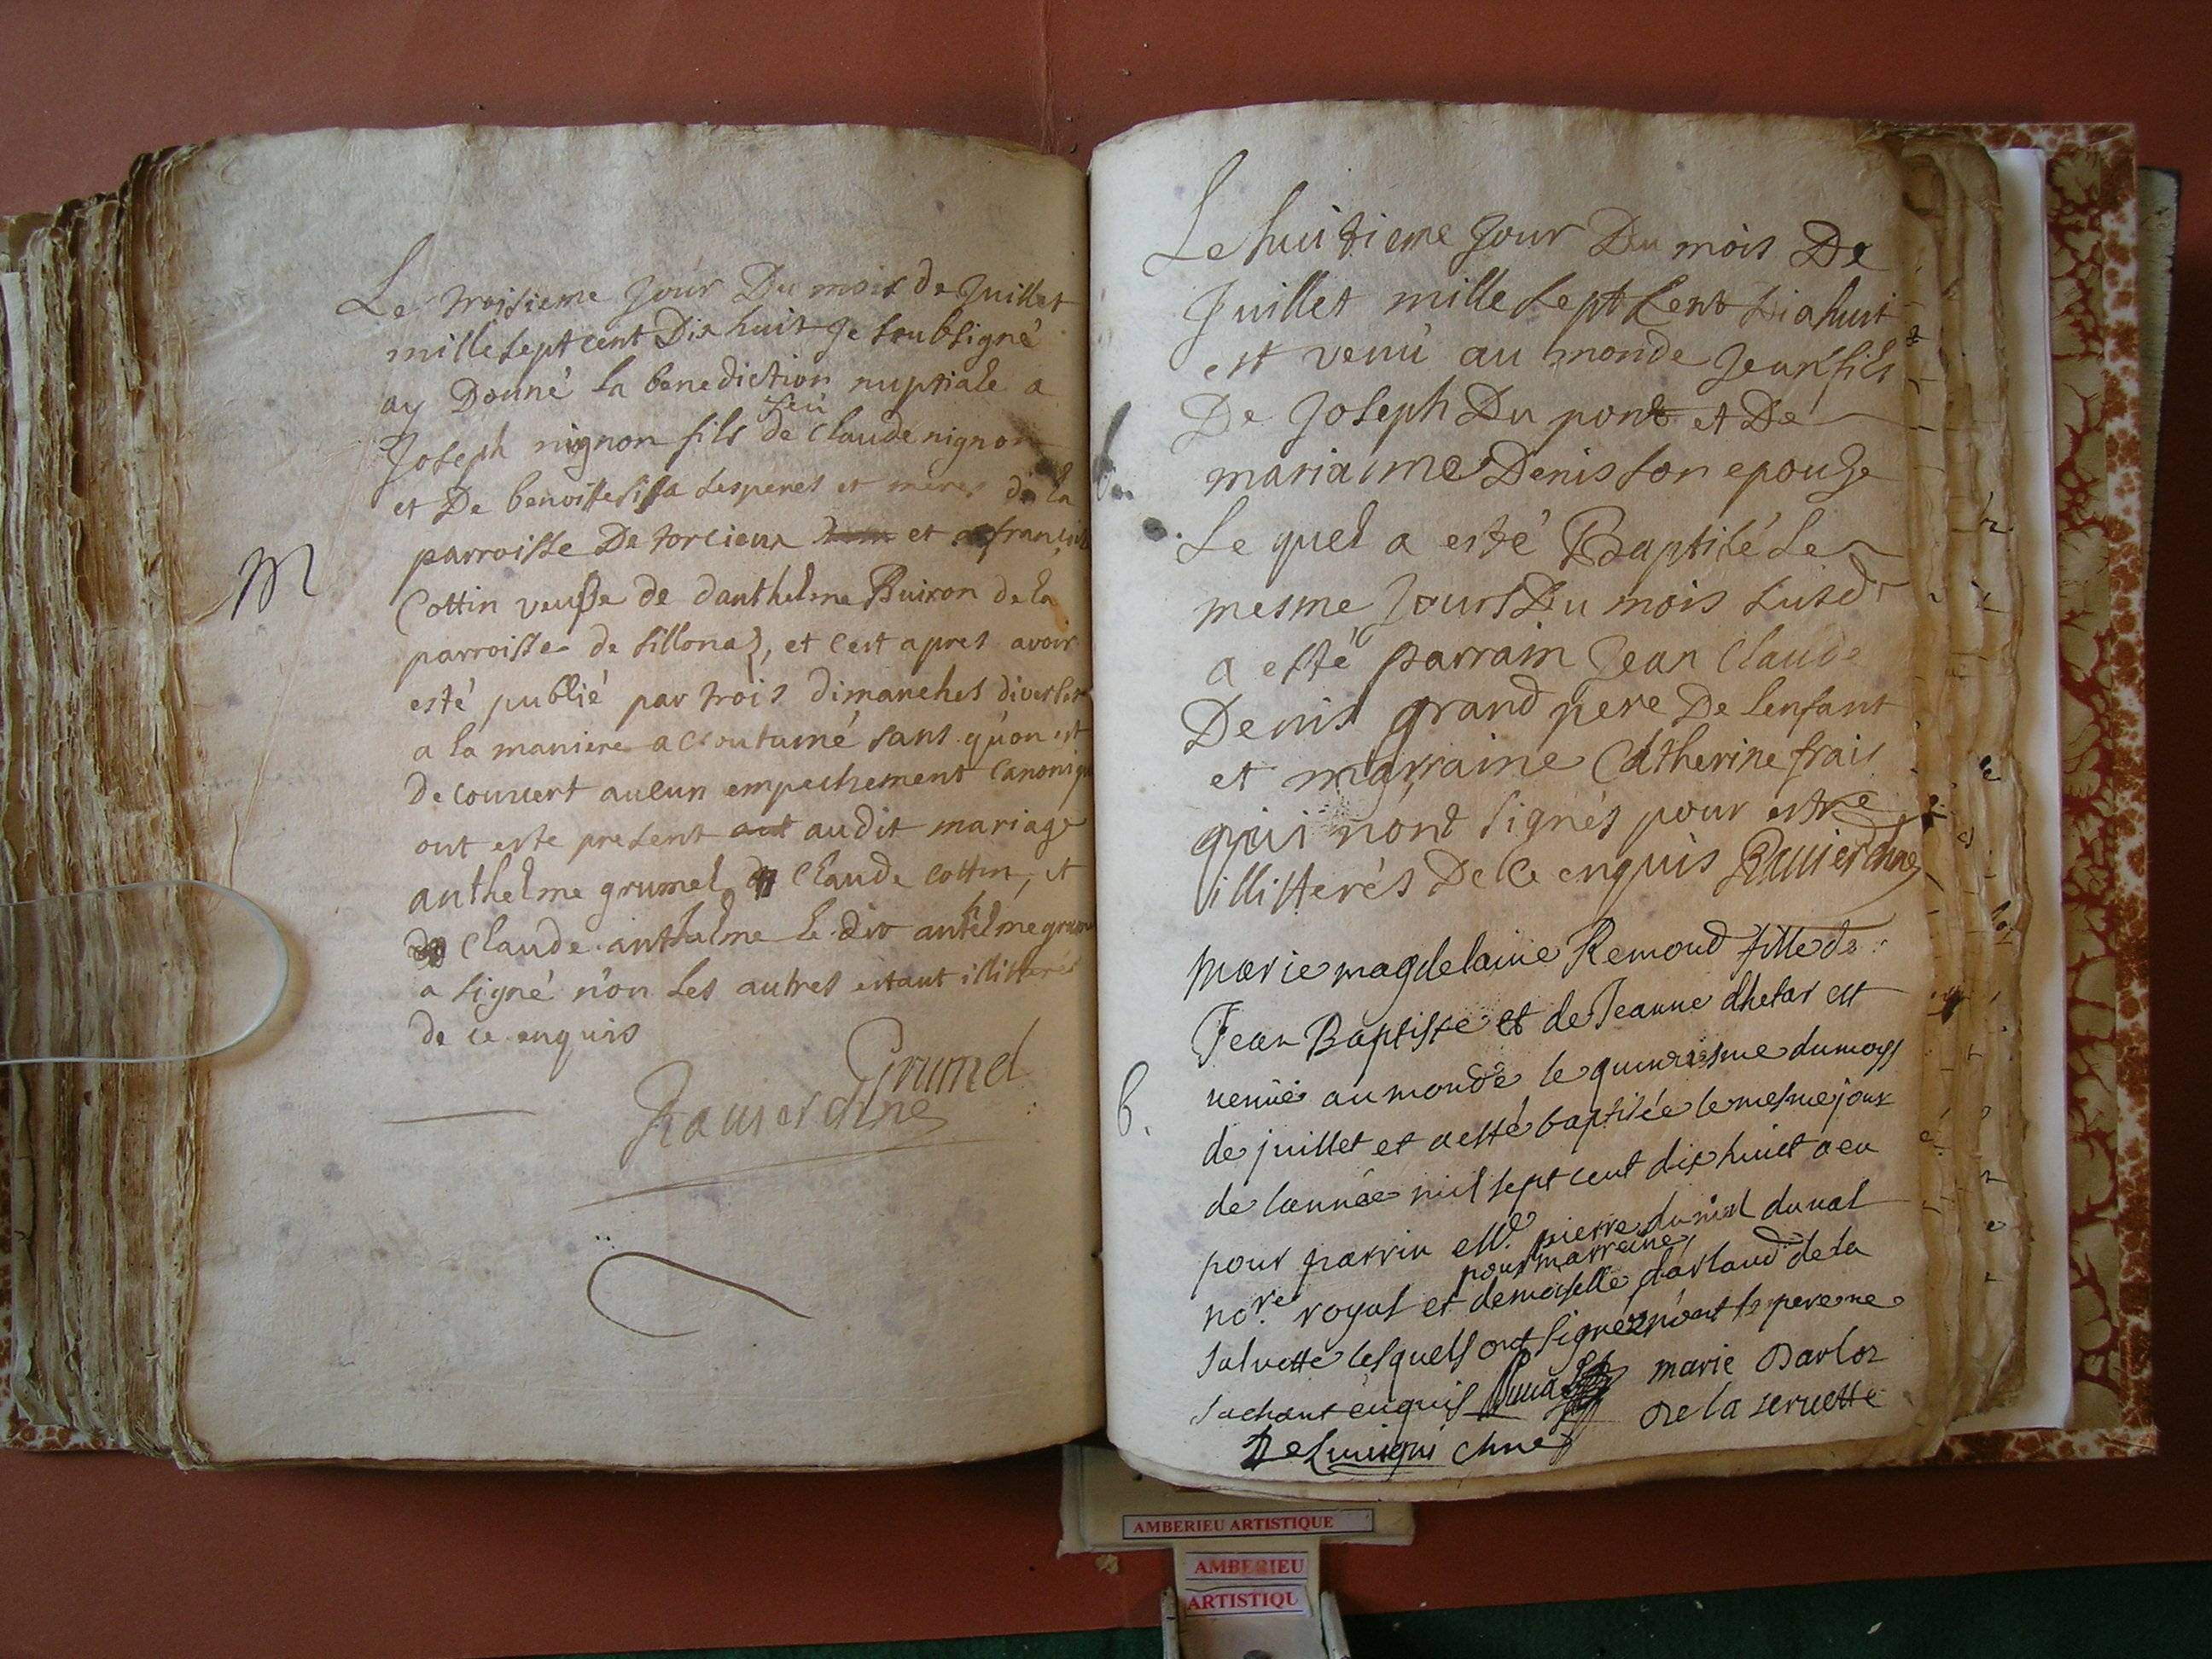 Le troisieme Jour Du mois de Juillet
mille sept cent Dix huit Je soubsigné
ay Donné la benediction nuptiale a
Joseph nignon fils de feu Claude nignon
et De benoiste sesperes et meres de la
parroisse De torcieux et a françoise
Cottin veufve de danthelme Buiron de la
parroisse de sillonaz, et cest apres avoir
esté publié par trois dimanches diverses
a la maniere accoutumé sans qu'on est
decouvert aucun empechement canoniq
ont este present audit mariage
anthelme grumel Claude cottin, et
Claude anthelme le dit antelme grumel
a signé non les autres estant illitterés
de ce enquis
Grumel
Ravier chne
M
Le huitieme Jour Du mois De
Juillet mille sept Cent Dixhuit
est venu au monde Jean fils
De Joseph Du pont et De
mariaime Denis son epouse
Le quel a esté Baptisé Le
mesme Jours Du mois susdt
a esté parrain Jean Claude
Denis grand pere De lenfant
et marraine Catherine frais
qui nont signés pour estre
illitterés De Ce enquis Ravier chne
B.
Marie magdelaine Remond fille de
Jean Baptiste et de Jeanne dhetar est
venüe au monde le quinziesme du moys
de juillet et a esté baptisée le mesme jour
de lannée mil sept cent dix huict a eu
pour parrin Me. pierre duval
nore. royal et pour marraine demoiselle darlaud de la
salvette lesquels ont signéz nont le pere ne
sachant enquis Duval marie Darloz
De la servette
chne
AMBERIEU ARTISTIQUE
AMBERIEU
ARTISTIQU